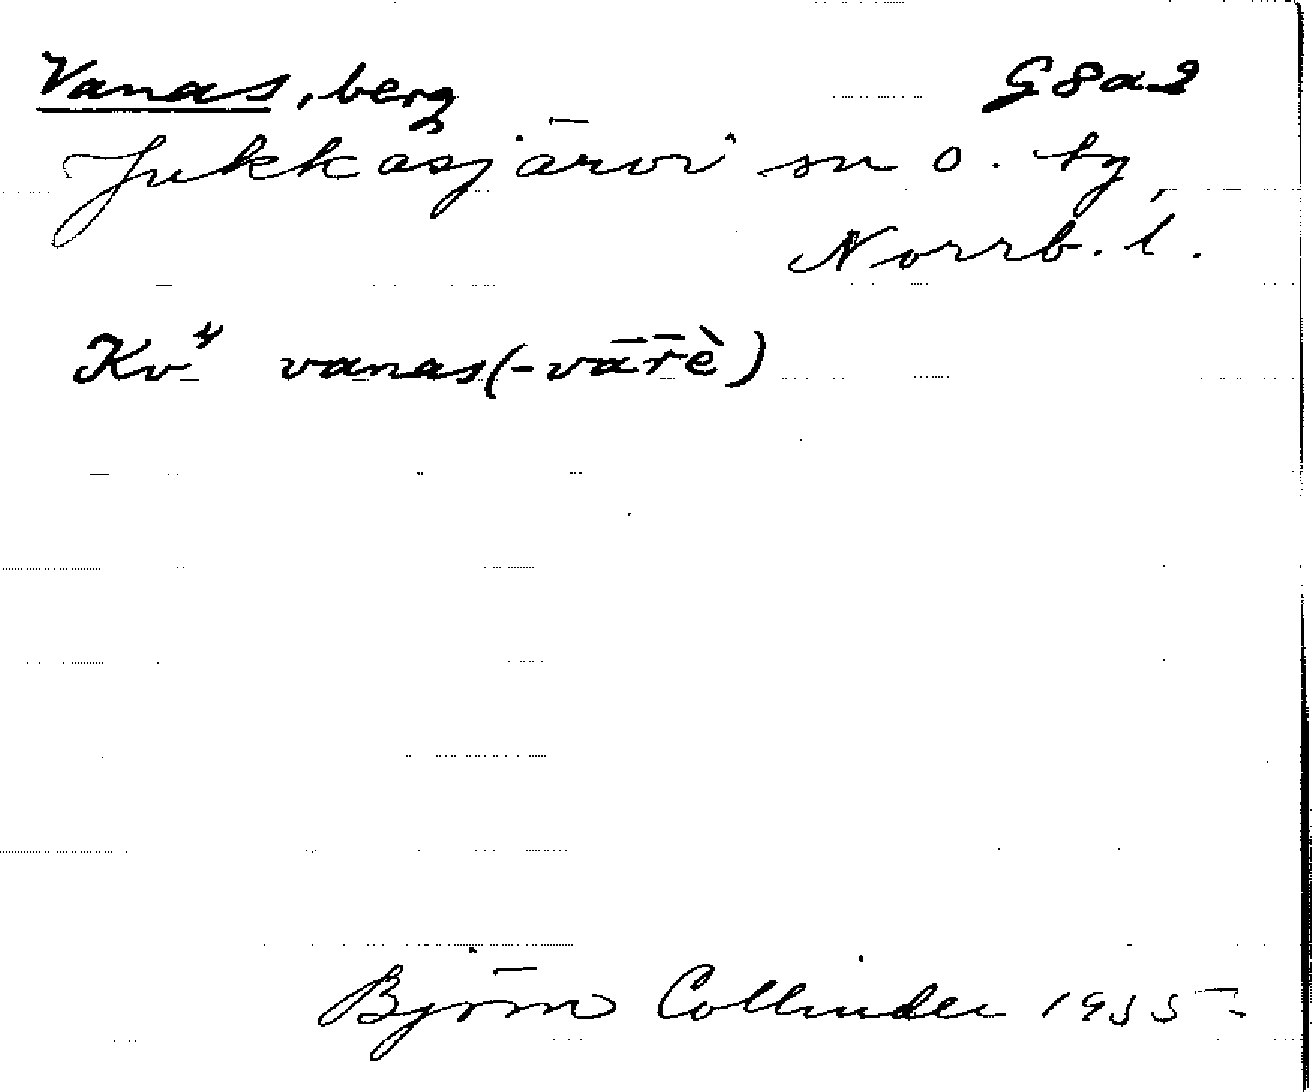 Vanas, berg G8a2
Jukkasjärvi sn o. tg,
Norrb. l.
Kv⁴ vanas(-vār̄è)
Björn Collinder 1935